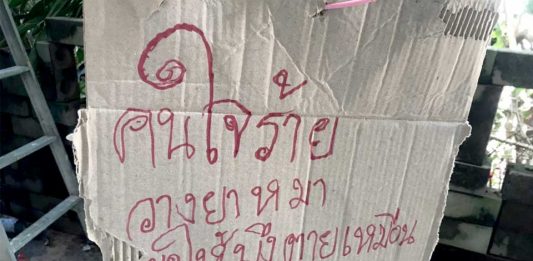 คนใจร้าย
วางยาหมา
ตายเหมือน